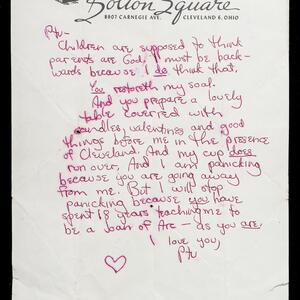 Bolton Square
8807 CARNEGIE AVE. CLEVELAND 6, OHIO
Children are supposed to think
parents are God. I must be back-
wards because I do think that.
You restoreth my soul.
And you prepare a lovely
table covered with
candles, valentines and good
things before me in the presence
of Cleveland. And my cup does
run over, And I am panicking
because you are going away
from me. But I will stop
panicking because you have
spent 18 years teaching me to
be a Joan of Arc - as you are.
I love you,